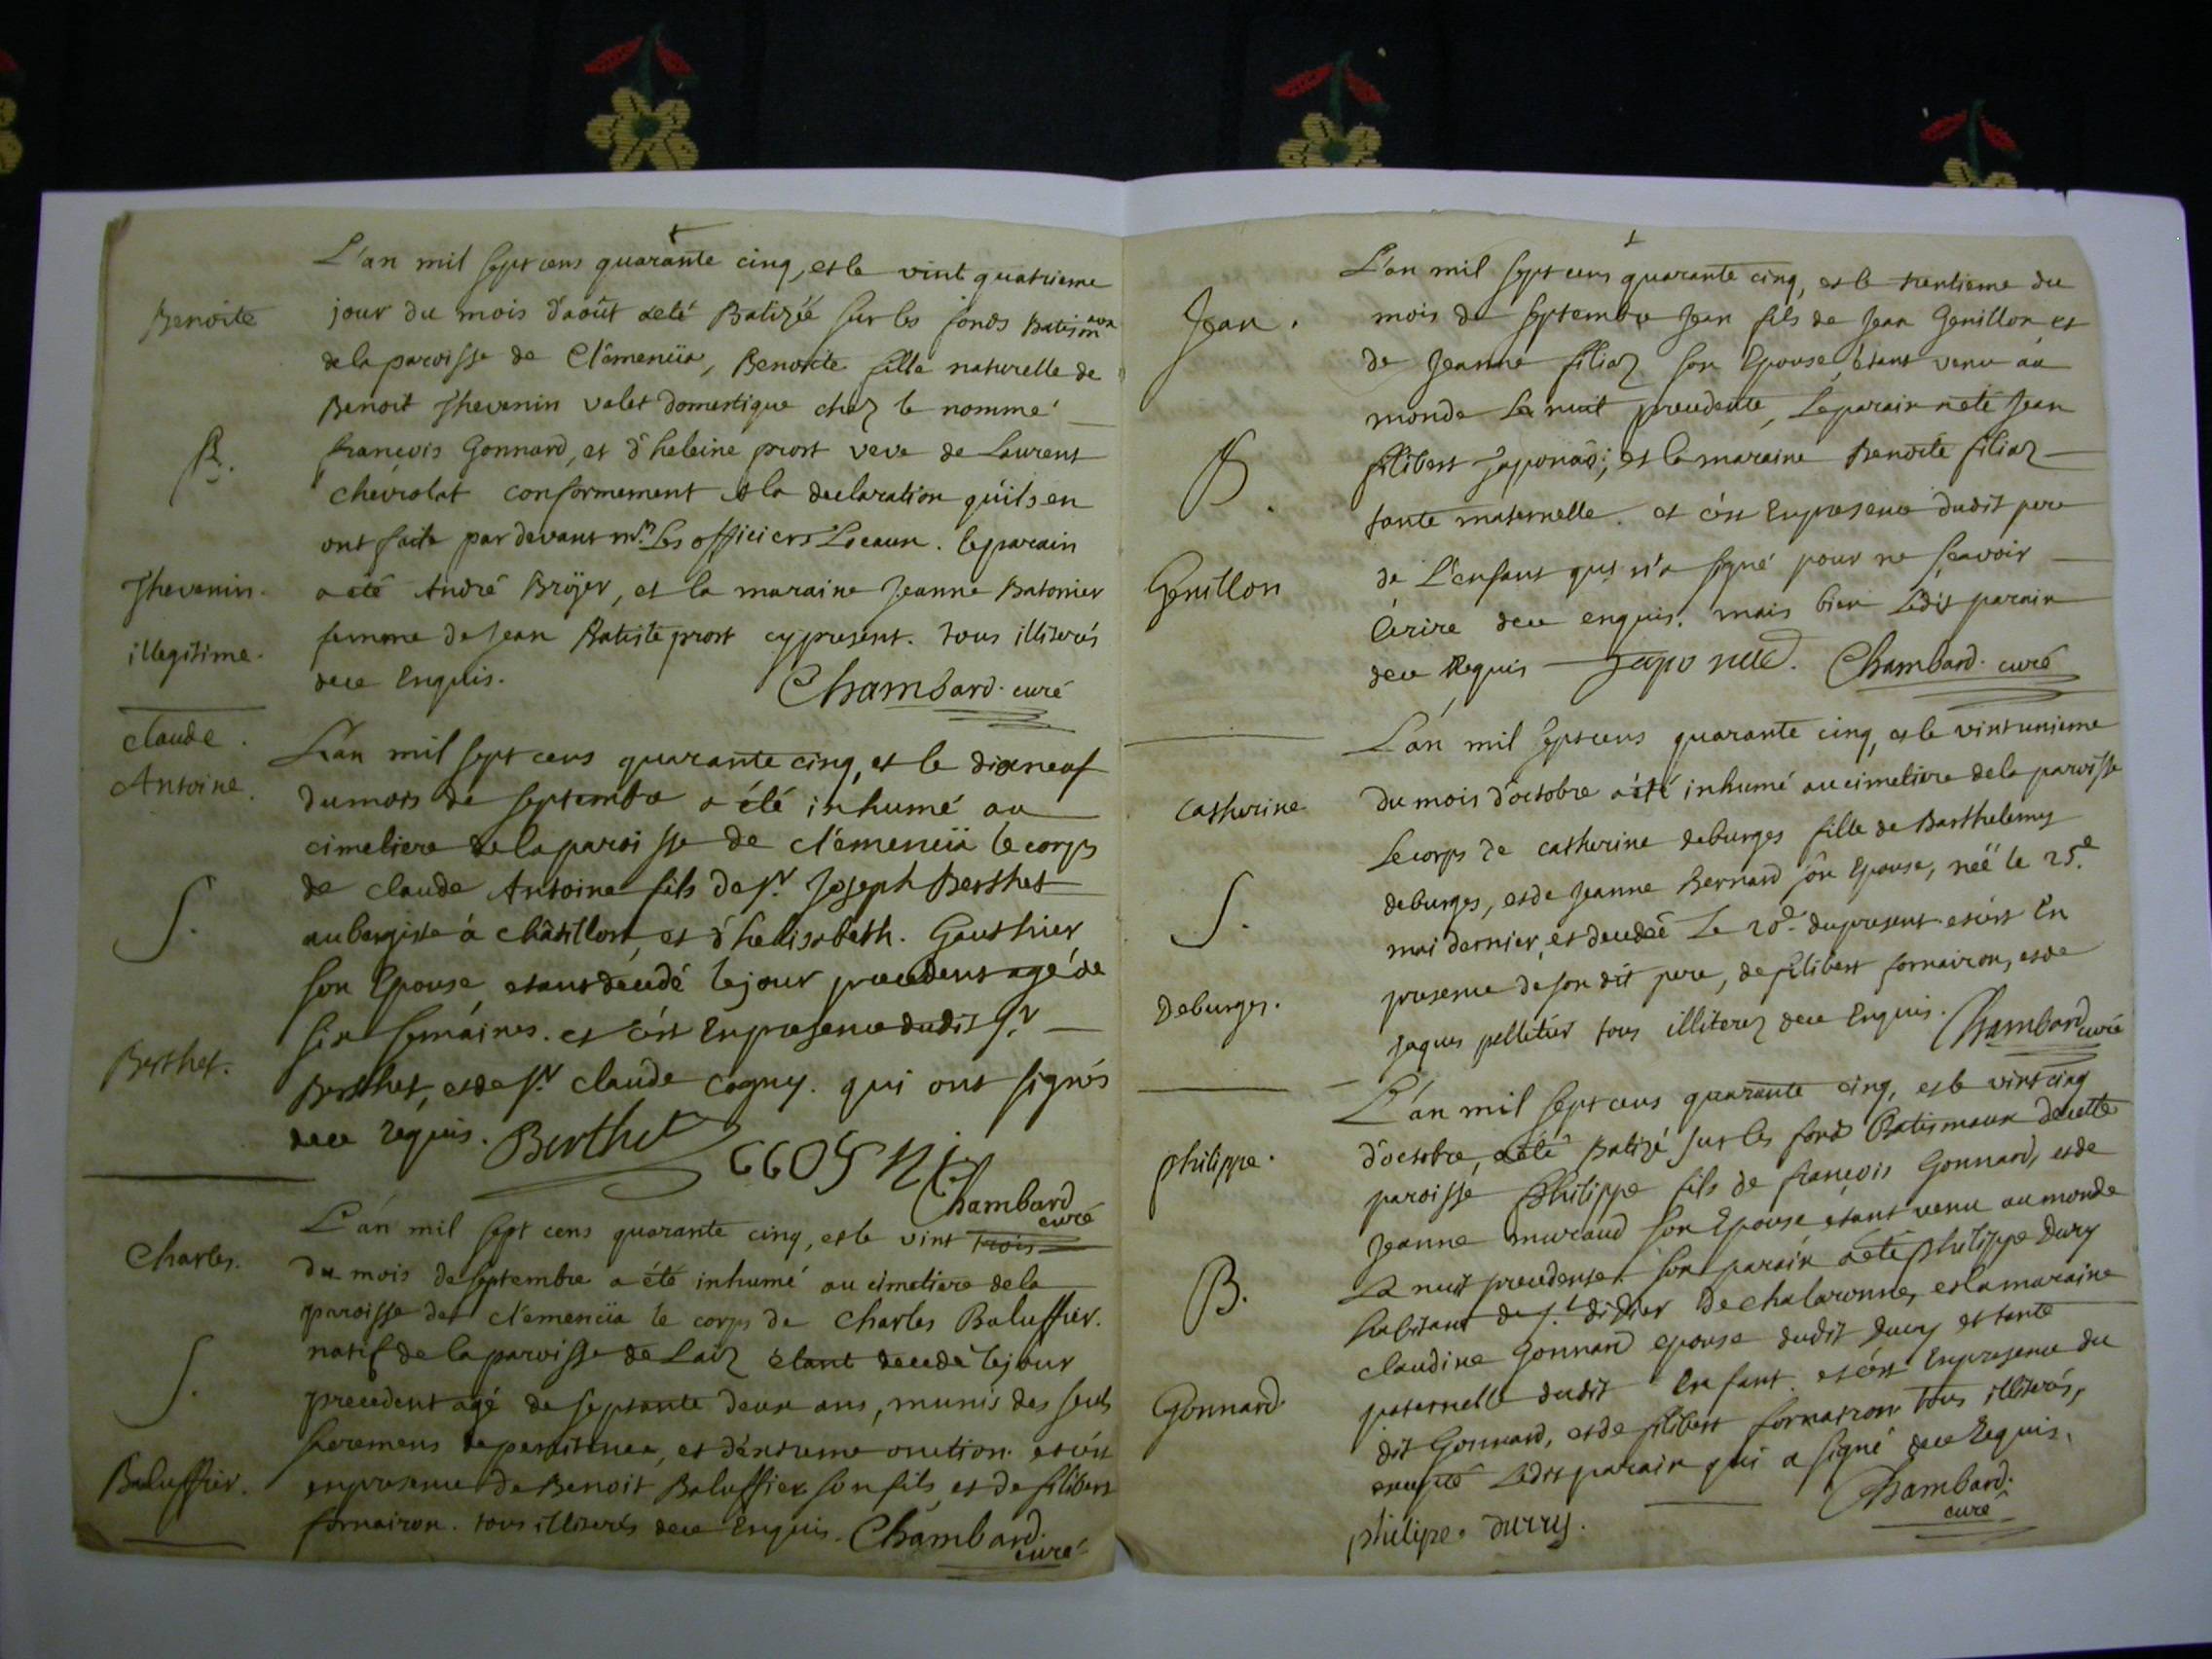 Benoite
B.
Thevenin.
illegitime.
L'an mil sept cens quarante cinq, et le vint quatrieme
jour du mois d'août a eté Batizéé sur les fonds Batismaux
de la paroisse de Clémenciia, Benoite fille naturelle de
Benoit Thevenin valet domestique chez le nommé
françois Gonnard, et d'heleine prost veve de Laurent
chévrolat conformement à la declaration qu'ils en
ont faite par devant mrs Les officiers Locaux. le parain
a été André Bröyer, et la maraine Jeanne Batonier
femme de Jean Batiste prost cy present. tous illiterés
dece Enquis.
Chambard. curé
claude.
Antoine.
S.
Berthet.
L'an mil sept cens quarante cinq, et le dixneuf
du mois de septembre a été inhumé au
cimetiere de la paroisse de clémenciia le corps
de claude Antoine fils de sr. Joseph Berthet
aubergiste à châtillon, et d'helisabeth. Gauthier
son Epouse etant décédé le jour precedent agé de
six semaines. et c'ést En presence dudit Sr
Berthet, et de sr. claude cogny. qui ont signés
dece requis. Berthet
cogni
Chambard
curé
Charles.
S.
Baluffier.
L'an mil sept cens quarante cinq, et le vint trois
du mois de septembre a été inhumé au cimetiere de la
paroisse de clémenciia le corps de Charles Baluffier.
natif de la paroisse de Laiz étant decedé le jour
precedent agé de septante deux ans, munis des seuls
sacremens de penitence, et d'éxtreme onction. et c'ést
en presence de Benoit Baluffier son fils, et de filibert
fornairon. tous illiterés dece Enquis. Chambard.
curé
Jean.
B.
Genillon
L'an mil sept cens quarante cinq, et le trentieme du
mois de septembre Jean fils de Jean Genillon et
de Jeanne filiaz son Epouse, étant venu au
monde La nuit precedente, Le parain a eté Jean
filibert et la maraine Benoite filiaz
tante maternelle. et c'ést En presence dudit pere
de L'enfant qui n'a signé pour ne sçavoir
écrire dece enquis. mais bien Ledit parain
dece Requis Chambard. curé
catherine
S.
Deburges.
L'an mil sept cens quarante cinq, et le vint unieme
du mois d'octobre a été inhumé au cimetiere de la paroisse
Le corps de catherine deburges fille de Barthelemy
deburges, et de Jeanne Bernard son Epouse, néë le 25e
mai dernier, et decedéé Le 20e. du present. et c'ést En
presence de son dit pere, de filibert fornairon, et de
jaques pelletier tous illiterez dece Enquis. Chambard
curé
philippe.
B.
Gonnard.
L'an mil sept cens quarante cinq, et le vint cinq
d'octobre, a été Batizé sur les fonds Batismaux de cette
paroisse Philippe fils de françois Gonnard, et de
Jeanne murcaud son Epouse étant venu au monde
La nuit precedente. son parain a eté philippe Dury
habitant de st. didier de chalaronne, et la maraine
claudine Gonnard epouse dudit Dury et tante
paternelle dudit Enfant. et c'ést En presence du
dit Gonnard, et de filibert fornairon tous illiterés,
excepté Ledit parain qui a signé dece Requis.
philipe. durry.
Chambard.
curé